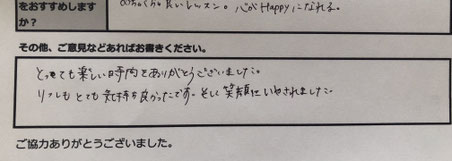 をおすすめします
か？
めちゃくちゃ良いレッスン。心がHappyになれる。
その他、ご意見などあればお書きください。
とっても楽しい時間をありがとうございました。
リフレもとても気持ち良かったです。そして笑顔にいやされました。
ご協力ありがとうございました。